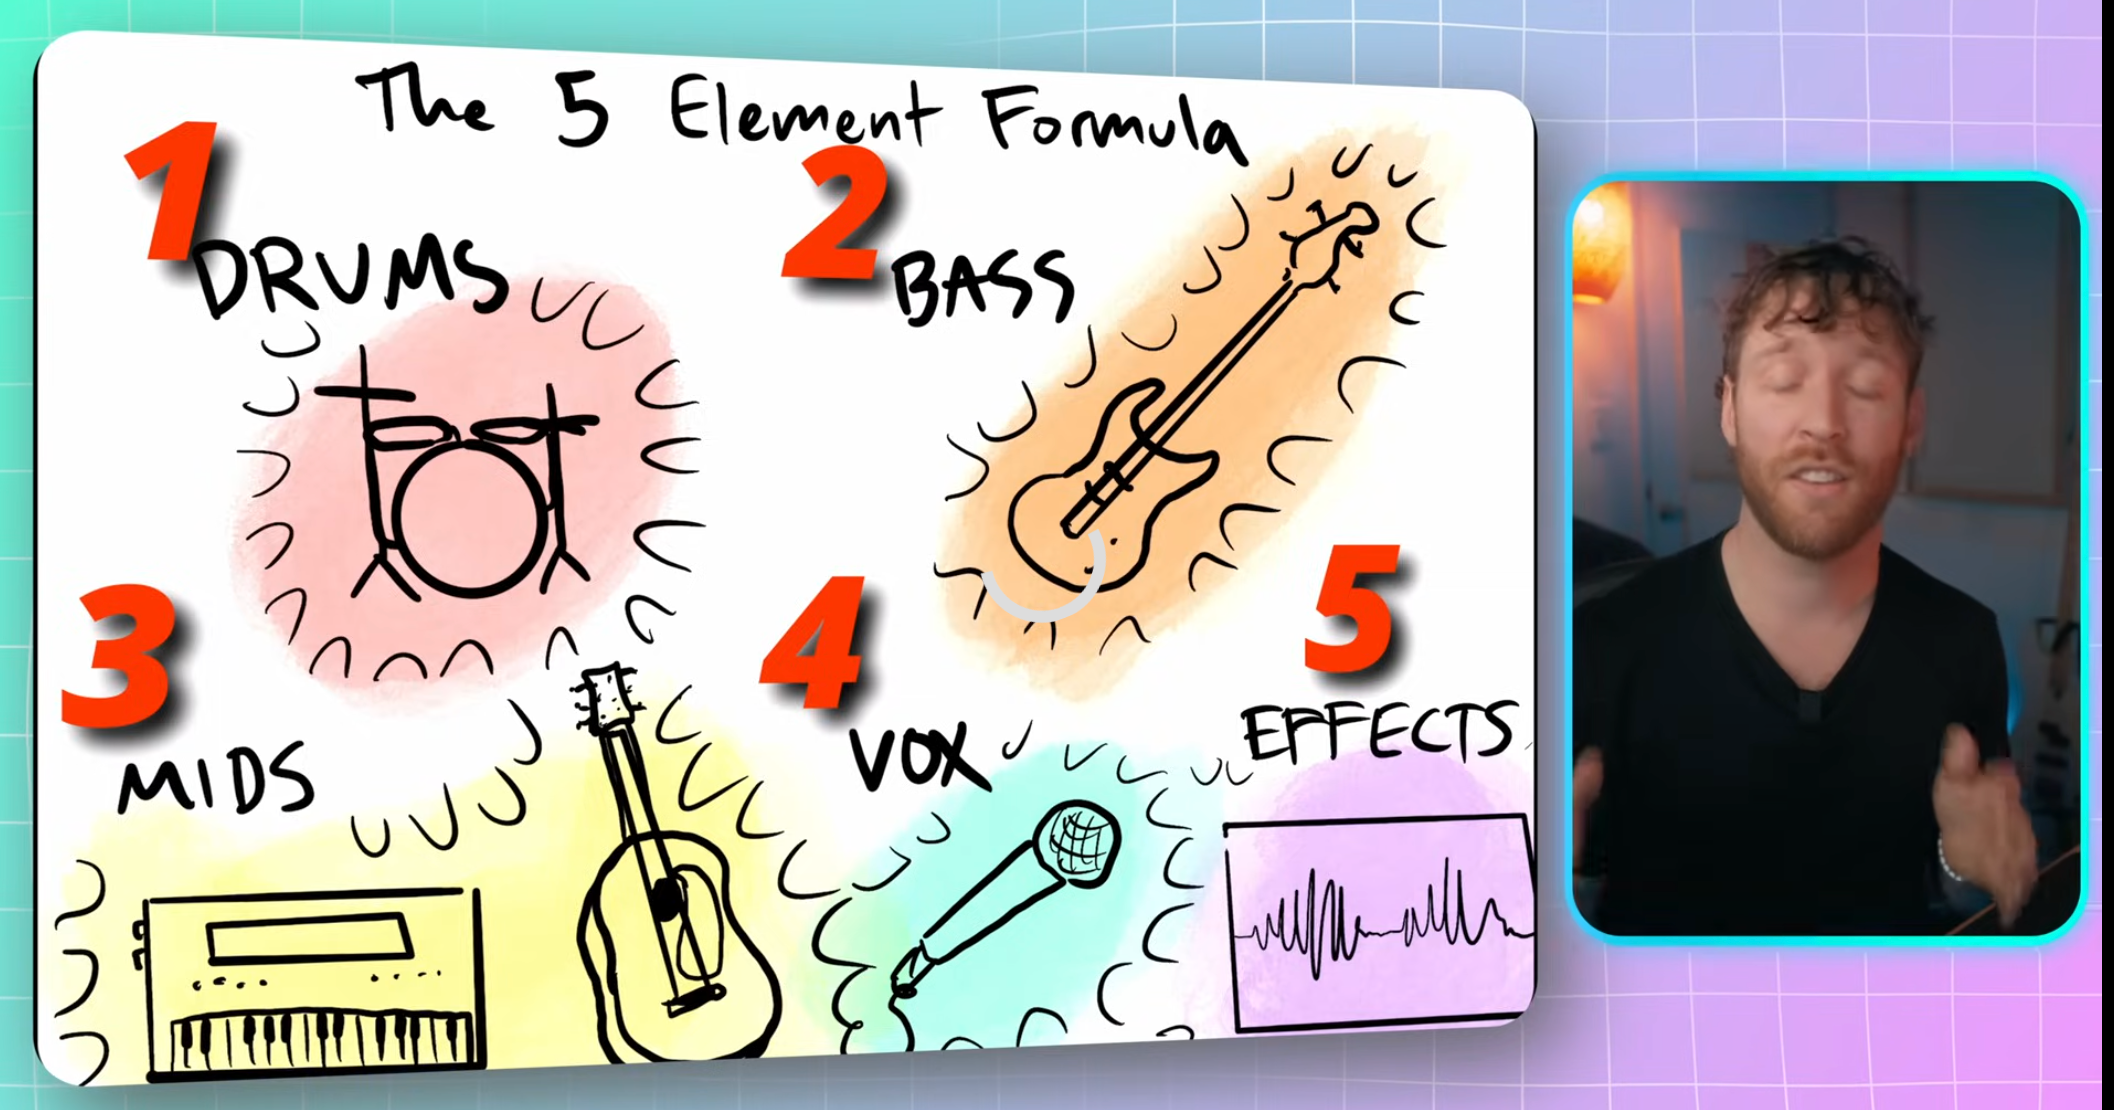 The 5 Element Formula
1
DRUMS
2
BASS
3
MIDS
4
VOX
5
EFFECTS